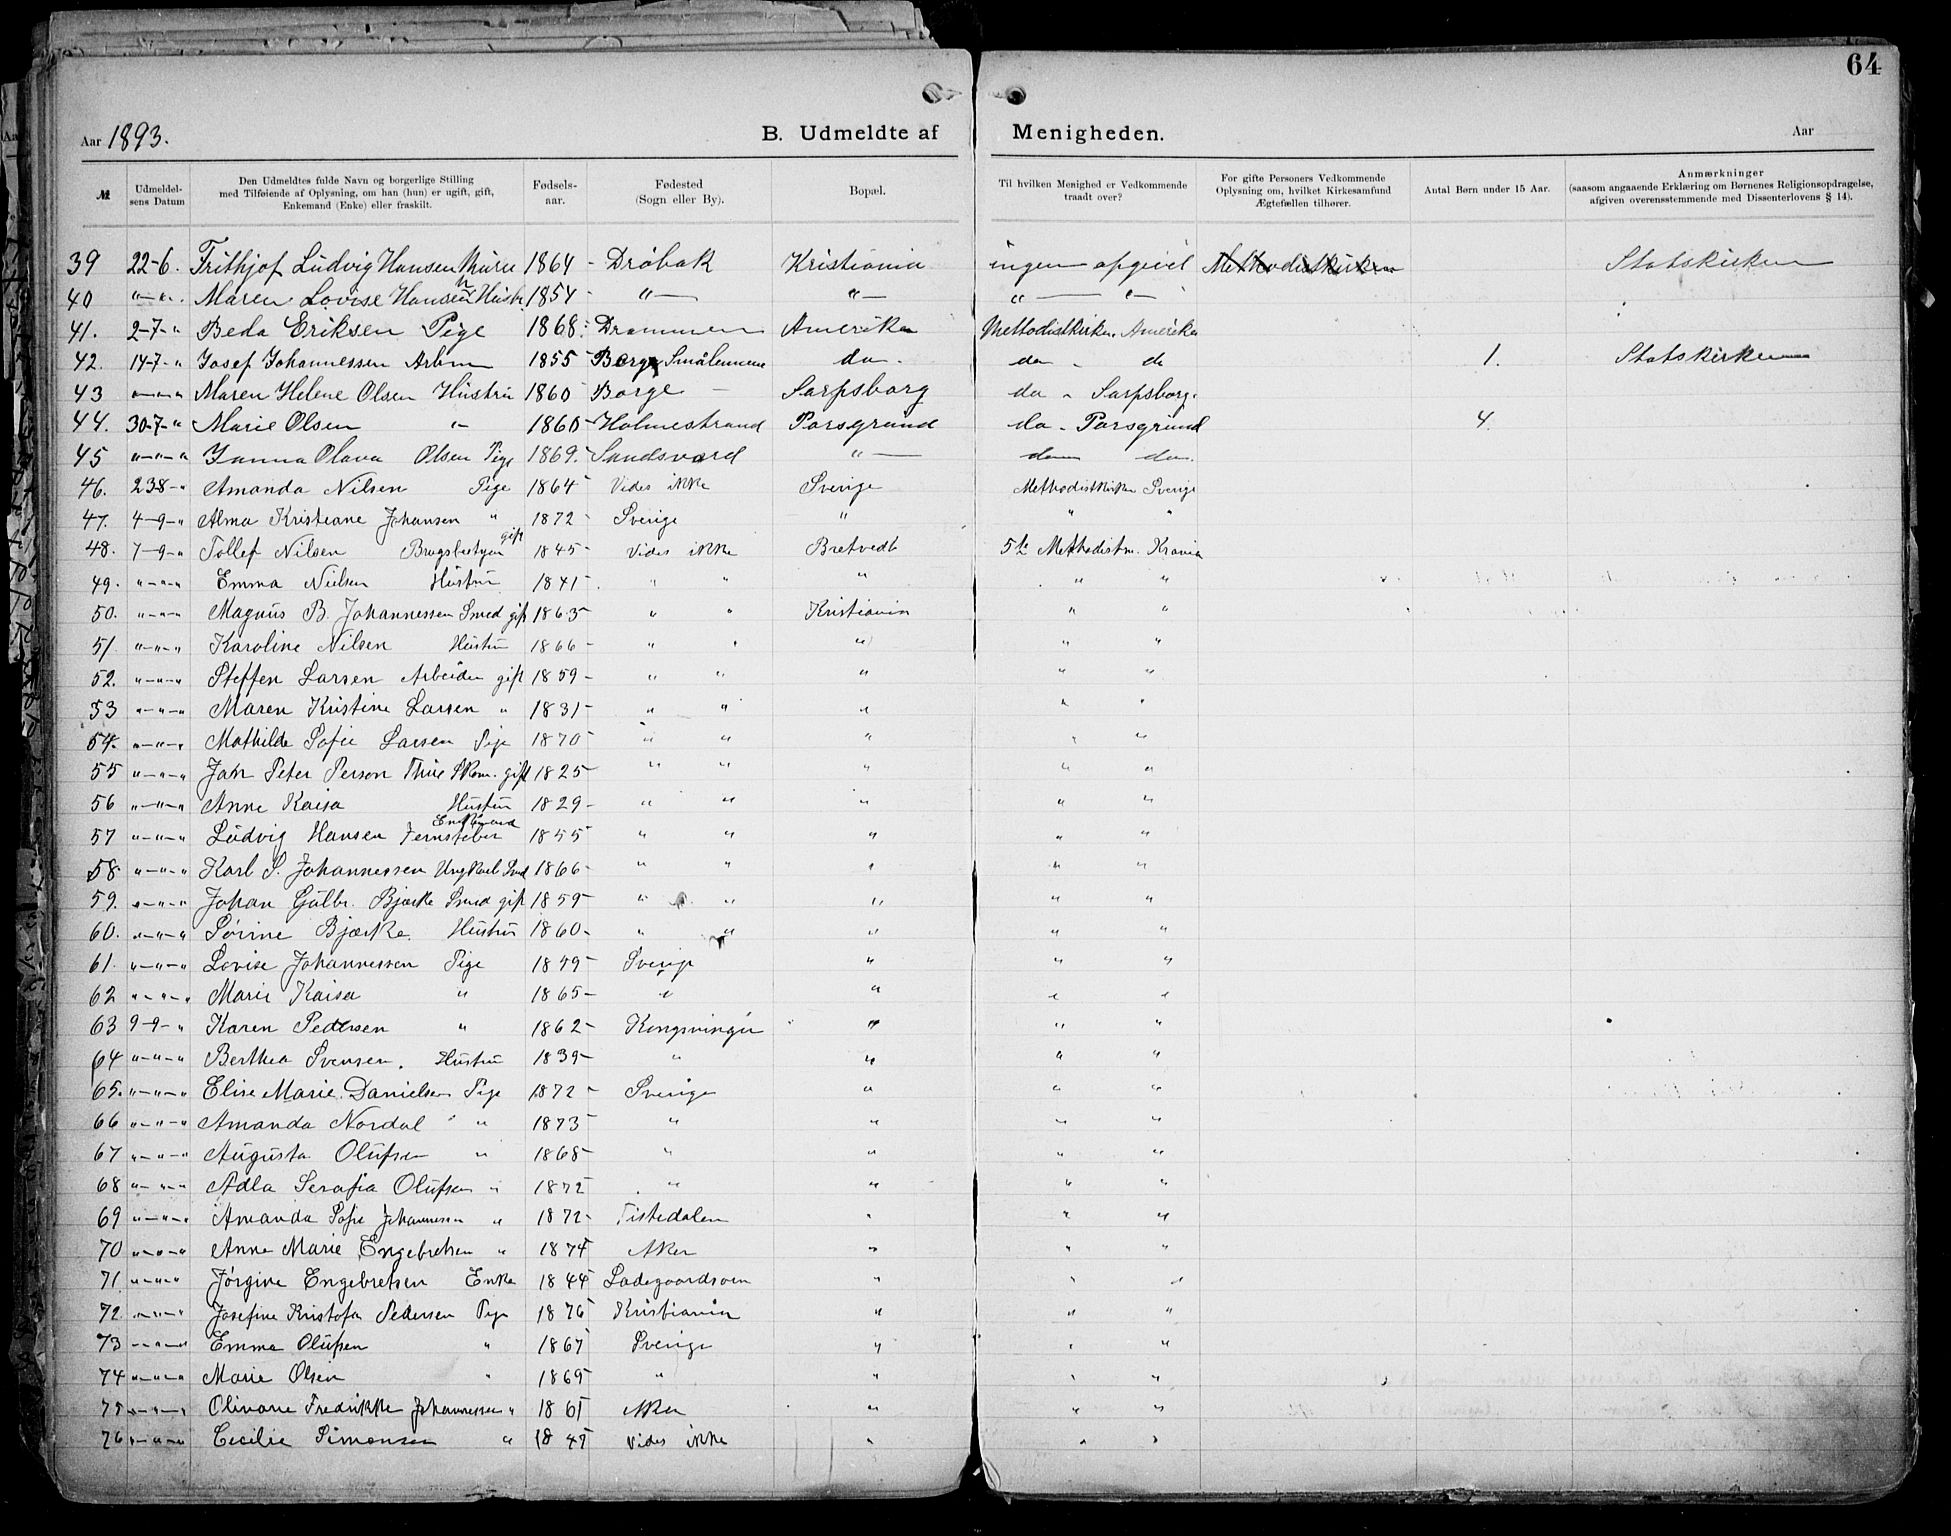 64
Aar 1893. B. Udmeldte af Menigheden. Aar
№ Udmeldel-sens Datum Den Udmeldtes fulde Navn og borgerlige Stilling med Tilføiende af Oplysning, om han (hun) er ugift, gift, Enkemand (Enke) eller fraskilt. Fødsels-aar. Fødested (Sogn eller By). Bopæl. Til hvilken Menighed er Vedkommende traadt over? For gifte Personers Vedkommende Oplysning om, hvilket Kirkesamfund Ægtefællen tilhører. Antal Børn under 15 Aar. Anmærkninger (saasom angaaende Erklæring om Børnenes Religionsopdragelse, afgiven overensstemmende med Dissenterlovens § 14).
39 22-6. Frithjof Ludvig Hansen 1864 - Drøbak Kristiania ingen opgivet Methodistkirken Statskirken
40 "-". Maren Lovise Hansen Hustr 1854 - "- "- " - "-
41. 2-7-" Beda Eriksen Pige 1868 Drammen Amerika Methodistkirken Amerika
42. 14-7-" Josef Johannessen Arbm 1855 - Borge Smålenene do. do - do 1. Statskirken
43 "-"-" Maren Helene Olsen Hustru 1860 Borge - Sarpsborg do " Sarpsborg.
44. 30-7-" Marie Olsen "- 1860 - Holmestrand Porsgrund do - Porsgrund 4.
45 "-"-" Olava Olsen Pige 1869. Sandsvœrd "- do do.
46. 238-" Amanda Nilsen Pige 1864 Vides ikke Sverige Methodistkirken Sverige
47. 4-9-" Alma Kristiane Johansen " 1872 - Sverige " " "
48. 7-9-" Tollef Nilsen Brugsbestyrer gift 1845 - Vides ikke Bretvedt 5te Methodistm. Krania
49. "-"-" Emma Nielsen Hustru 1841 - " " " " "
50. "-"-" Magnus B. Johannessen Smed gift 1863 - " " Kristiania " "
51. "-"-" Karoline Nilsen Hustru 1866 - " " " " "
52. "-"-" Steffen Larsen Arbeider gift 1859 - " " " " "
53 "-"-" Maren Kristine Larsen " 1831 - " " " " "
54. "-"-" Mathilde Sofie Larsen Pige 1870 " " " " "
55 "-"-" Joh Peter Person Skom. gift 1825 " " " " "
56 "-"-" Anne Kaisa Hustru 1829 - " " " " "
57 "-"-" Ludvig Hansen Jernstøber Enkemand 1855 " " " " "
58. "-"-" Karl S. Johannessen Ungkarl Smed 1866 - " " " " "
59. "-"-" Johan Gulbr. Bjærke Smed gift 1859 - " " " " "
60. "-"-" Sørine Bjærke. Hustru 1860 - " " " " "
61. "-"-" Lovise Johannessen Pige 1849 - Sverige " " "
62 "-"-" Marie Kaisa " 1865 - " " " "
63 9-9-" Karen Pedersen " 1862 - Kongsvinger " " "
64 "-"-" Berthea Svensen. Hustru 1839 - " " " "
65. "-"-" Elise Marie Danielsen Pige 1872 - Sverige " " "
66 "-"-" Amanda Nordal " 1873 " " " "
67 "-"-" Augusta Olufsen " 1868 - " " " "
68 "-"-" Adla Serafia Olufsen " 1872 " " " "
69 "-"-" Amanda Sofie Johannessen " 1872 - Tistedalen " " "
70 "-"-" Anne Marie Engebretsen " 1874 Aker " " "
71 "-"-" Jørgine Engebretsen Enke 1844 Ladegaardsøen " " "
72. "-"-" Josefine Kristofa Pedersen Pige 1876 Kristiania " " "
73 "-"-" Emma Olufsen " 1867 Sverige " " "
74 "-"-" Marie Olsen " 1869 " " " "
75 "-"-" Olivane Fredrikke Johannessen " 1861 Aker " " "
76 "-"-" Cecilie Simonsen " 1847 Vides ikke " " "